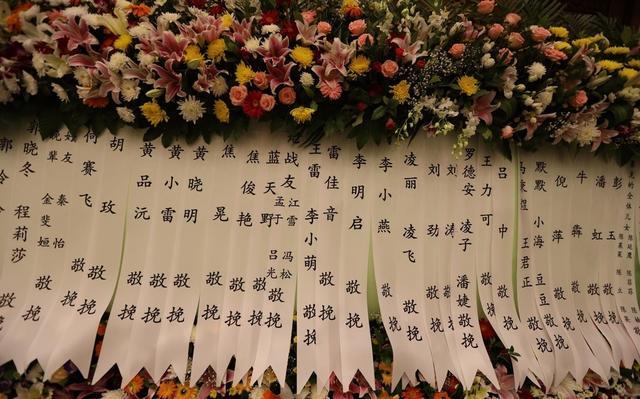 郭晓冬 程莉莎 敬挽
秦怡
金斐姮 敬挽
何赛飞 敬挽
胡玫 敬挽
黄品沅 敬挽
黄小雷 敬挽
黄晓明 敬挽
焦晃 敬挽
焦俊艳 敬挽
蓝天野 敬挽
战友 孟于 江雪 吕光 冯松 敬挽
王雷 李小萌 敬挽
雷佳音 敬挽
李明启 敬挽
李小燕 敬挽
凌丽 凌飞 敬挽
刘劲 敬挽
刘涛 敬挽
罗德安 凌子 潘婕 敬挽
王力可 敬挽
吕中 敬挽
王君正 敬挽
默默 小海 豆豆 敬挽
倪萍 敬挽
牛犇 敬挽
潘虹 敬挽
彭玉 敬挽